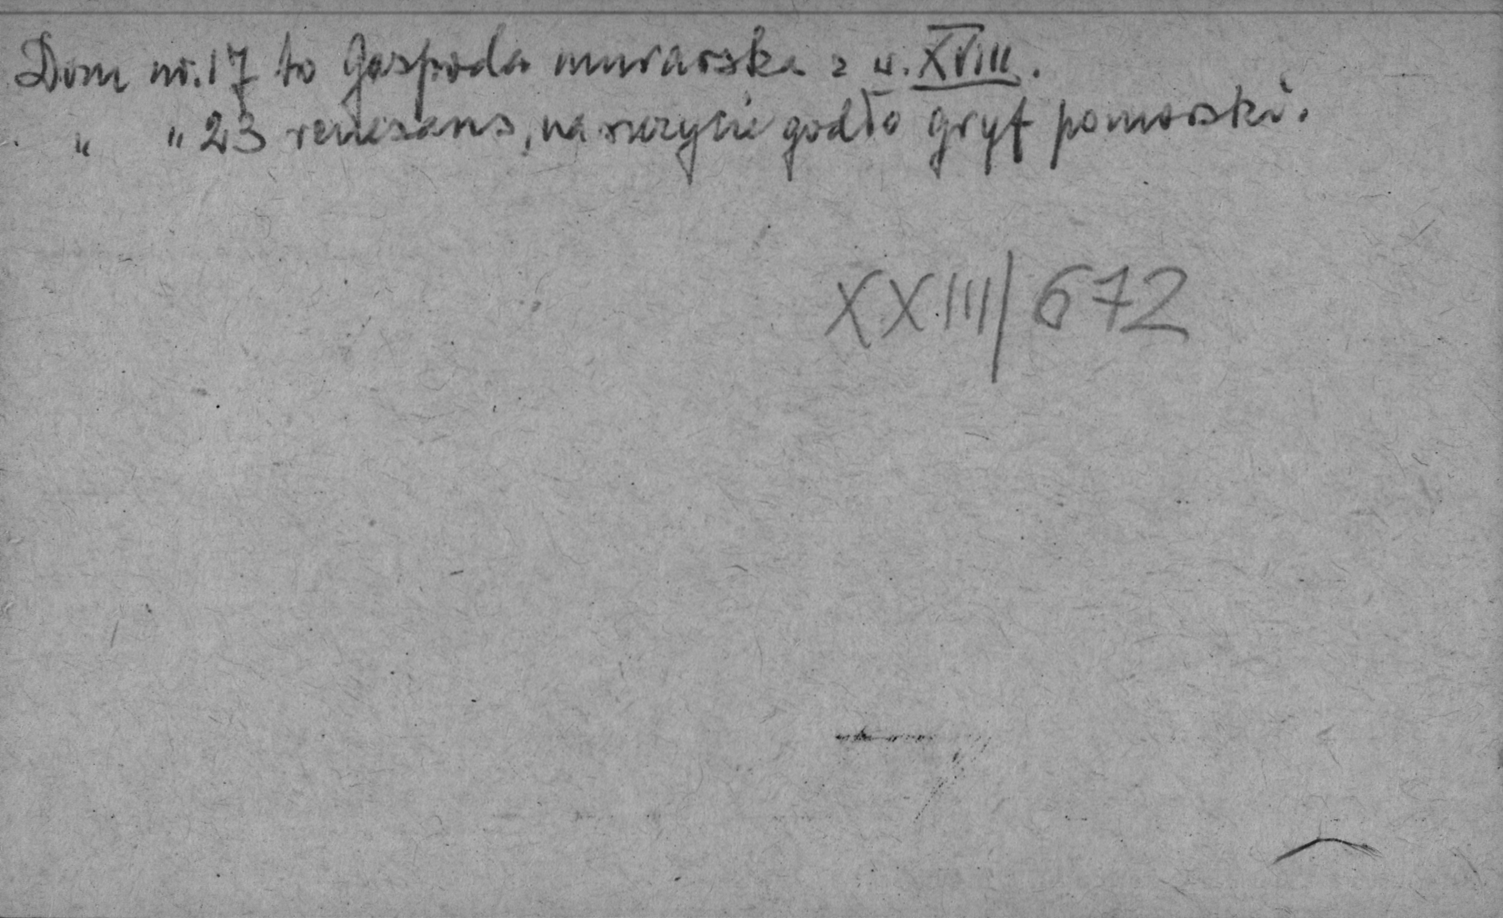 Dom nr. 17 to Gospoda murarska z w. XVIII.
" " 23 renesans, na szczycie godło gryf pomorski.
XXIII/672